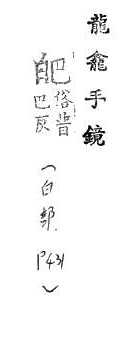 龍龕手鏡
皅俗普
巴反
(白部. P431)